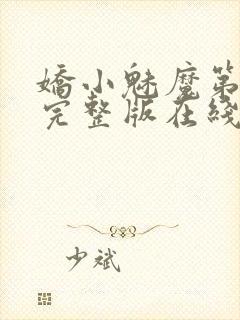 嬌小魅魔第
完整版在綫
少斌